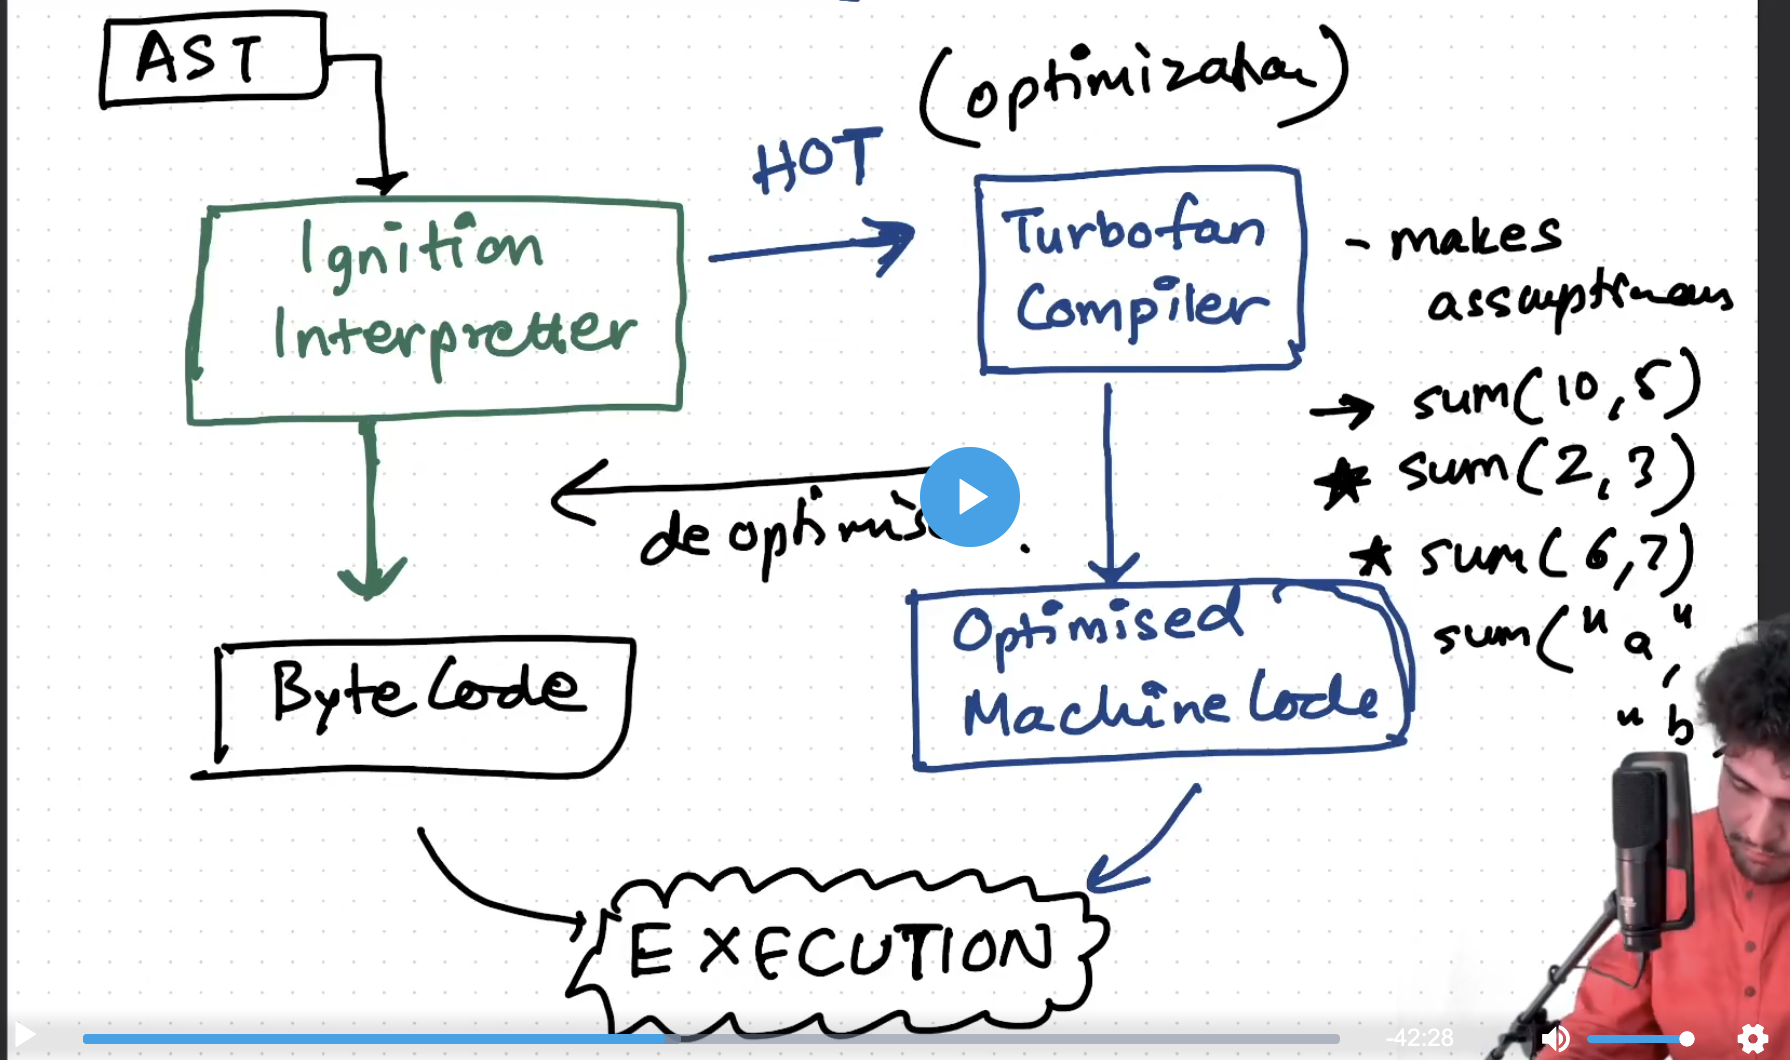 AST
(optimization)
HOT
Ignition
Interpretter
Turbofan
Compiler
- makes
assumptions
→ sum(10,5)
★ sum(2,3)
★ sum(6,7)
sum("a",
"b
Optimised
Machine Code
Byte Code
EXECUTION
-42:28